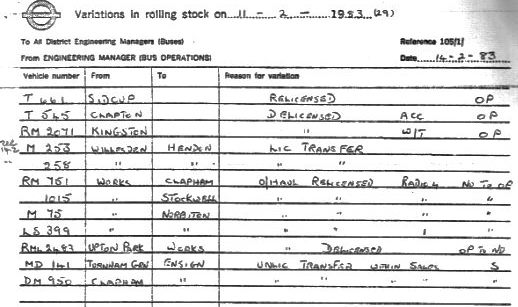 Variations in rolling stock on 11 - 2 - 1983 (29)
To All District Engineering Managers (Buses) Reference 105/1/
From ENGINEERING MANAGER (BUS OPERATIONS) Date 14-2-83
Vehicle number From To Reason for variation
T 661 SIDCUP RELICENSED OP
T 545 CLAPTON DELICENSED ACC OP
RM 2071 KINGSTON " W/T OP
M 253 WILLESDEN HENDON LIC TRANSFER
258 " " " "
RM 761 WORKS CLAPHAM O/HAUL RELICENSED RADIO 4 NO TO OP
1015 " STOCKWELL " " " "
M 75 " NORBITON " " " "
LS 399 " " " " " "
RML 2483 UPTON PARK WORKS " DELICENSED OP TO NO
MD 141 TURNHAM GRN ENSIGN UNLIC TRANSFER WITHIN SALES S
DM 950 CLAPHAM " " " " "